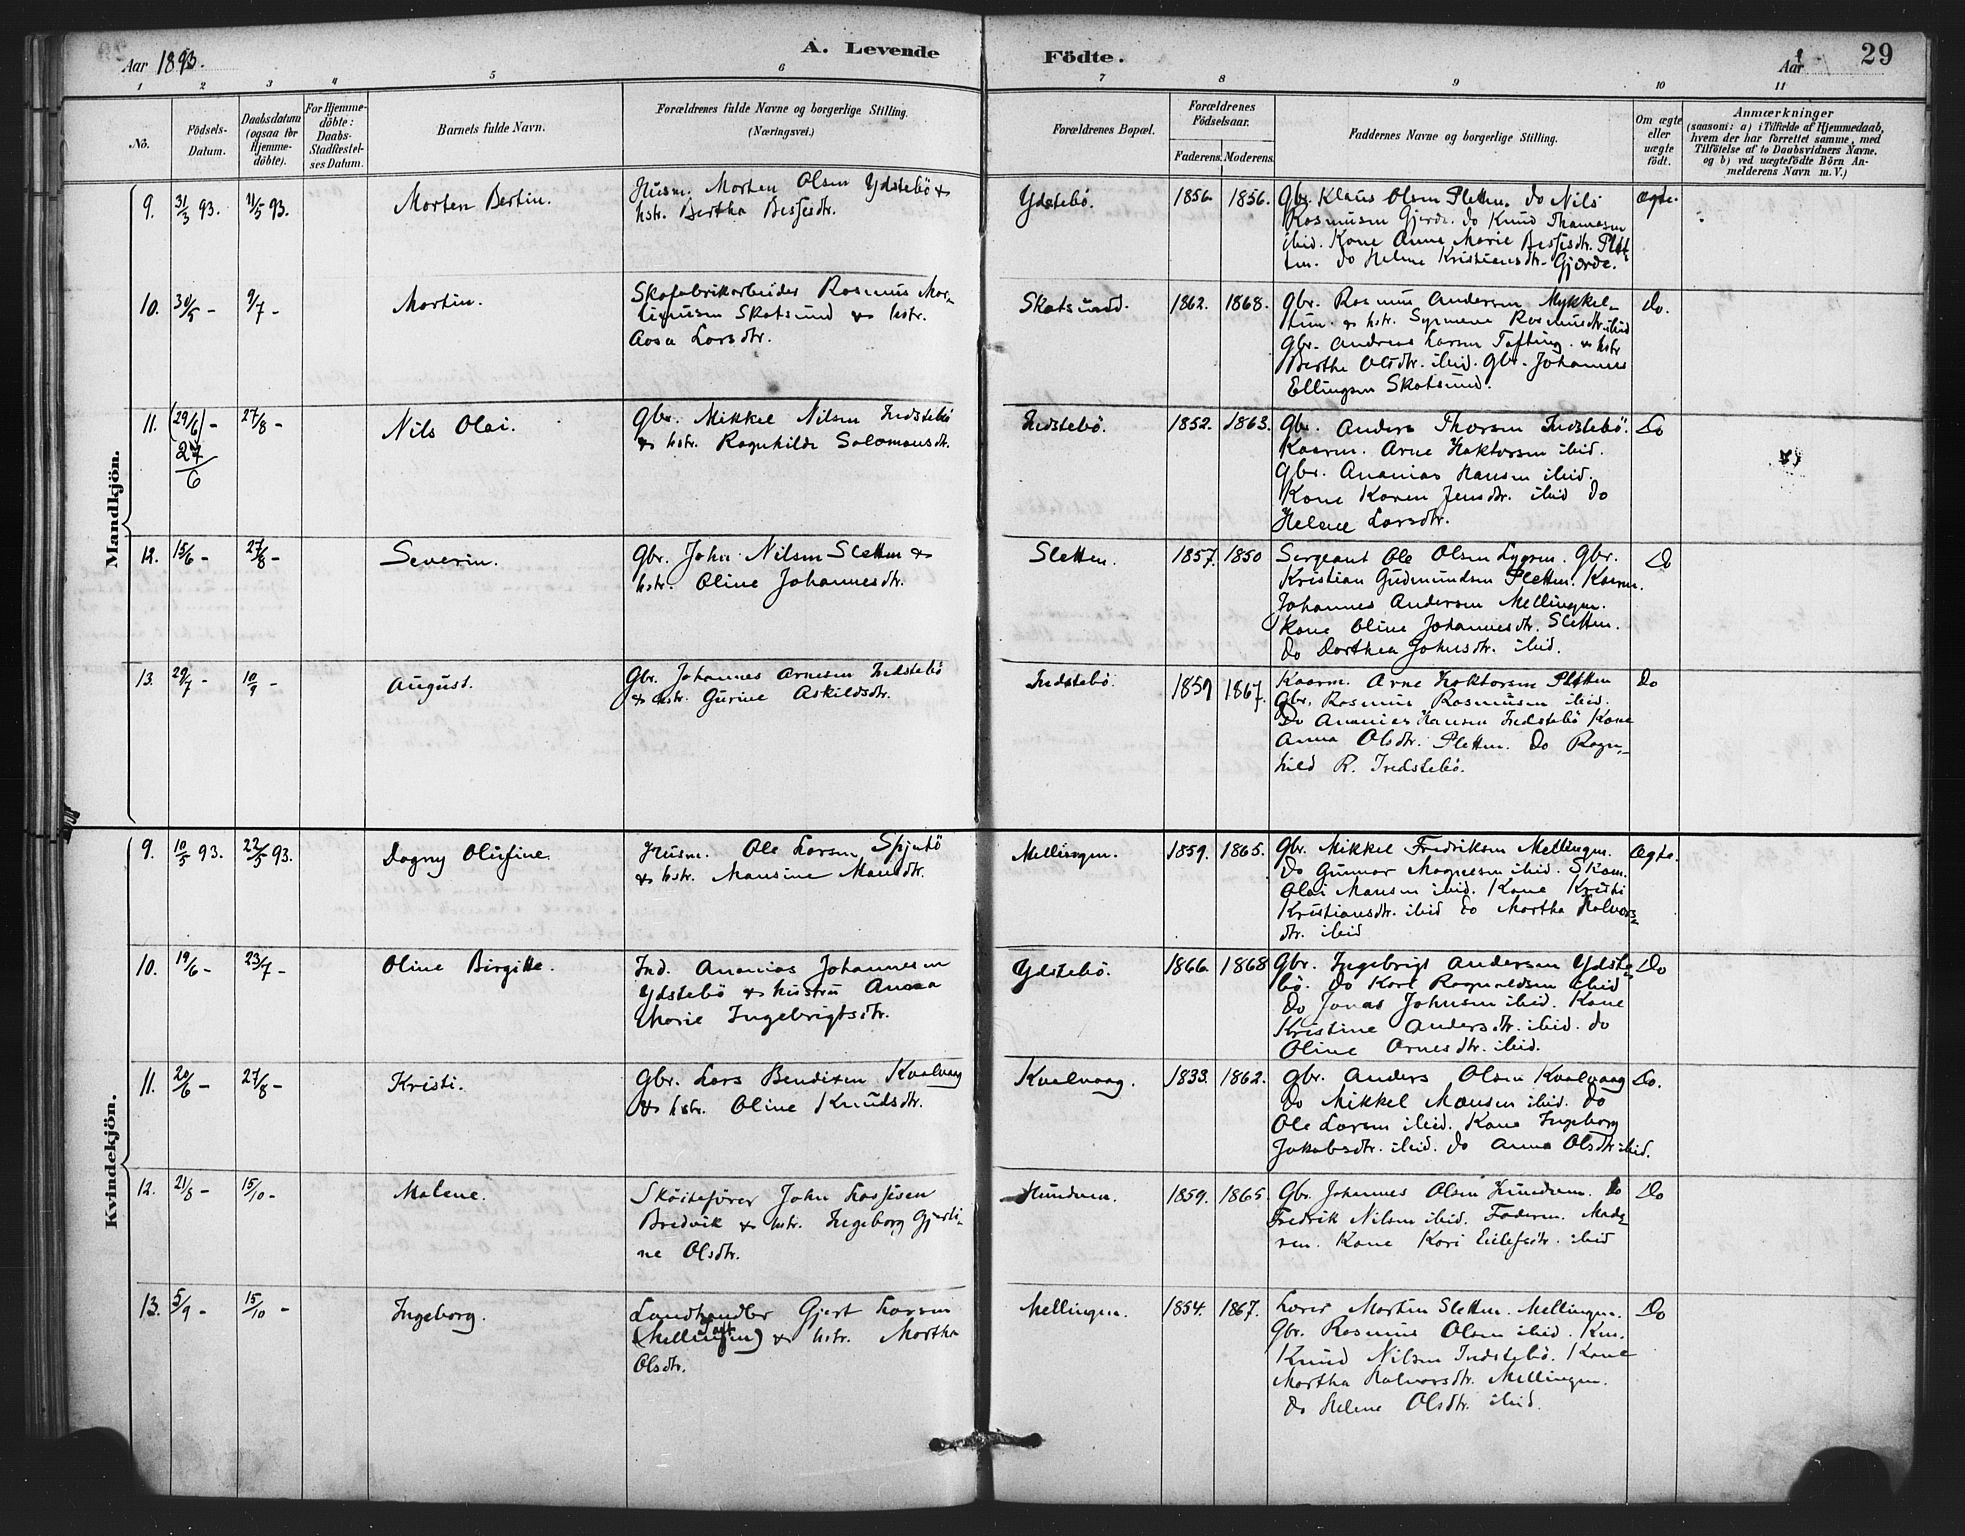 Aar 1893.
A. Levende Födte.
Aar
29
1 2 3 4 5 6 7 8 9 10 11
No.
Födsels-Datum.
Daabsdatum (ogsaa for Hjemmedöbte).
For Hjemmedöbte: Daabs-Stadfæstelses Datum.
Barnets fulde Navn.
Forældrenes fulde Navne og borgerlige Stilling. (Næringsvei.)
Forældrenes Bopæl.
Forældrenes Födselsaar.
Faderens. Moderens.
Faddernes Navne og borgerlige Stilling.
Om ægte eller uægte födt.
Anmærkninger
(saasom: a) i Tilfælde af Hjemmedaab, hvem der har forrettet samme, med Tilföielse af to Daabsvidners Navne. og b) ved uægtefödte Börn Anmelderens Navn m. V.)
Mandkjön.
9. 31/3 93. 11/5 93. Morten Bertin.
Husm. Morten Olsen Ydstebö &
hstr. Bertha
Ydstebö. 1856. 1856.
Gbr. Klaus Olsen Sletten. do Nils
Rasmusen Gjerde. do Knud Thomasen
ibid. Kone Anne Marie
do Helene Kristiansdtr. Gjerde.
Ægte.
10. 30/5 - 9/7 - Martin.
Skofabrikarbeider Rasmus Mar-
tinusen Skotsund & hstr.
Aasa Larsdtr.
Skotsund. 1862. 1868.
Gbr. Rasmus Andersen Mykkel-
tun. & hstr. Rasmusdtr. ibid
Gbr. Andreas Larsen & hstr
Berthe Olsdtr. ibid. Gbr. Johannes
Ellingsen Skotsund.
Do.
11. (29/6) - 27/6 27/8 - Nils Olai.
Gbr. Mikkel Nilsen Indstebö
& hstr. Ragnhilde Salomonsdtr.
Indstebö. 1852. 1863.
Gbr. Anders Thorsen Indstebö.
Kaarm. Arne Haktorsen ibid.
Gbr. Ananias Hansen ibid.
Kone Karen Jensdtr. ibid do
Helene Larsdtr.
Do
12. 15/6 - 27/8 - Severin.
Gbr. John Nilsen Sletten &
hstr. Oline Johannesdtr.
Sletten. 1857. 1850
Sergeant Ole Olsen Lygren. Gbr.
Kristian Gudmundsen Sletten. Kaarm.
Johannes Andersen Mellingen.
Kone Oline Johannesdtr. Sletten.
Do Dorthea Johnsdtr. ibid.
Do
13. 29/7 - 10/9 - August.
Gbr. Johannes Arnesen Indstebö
& hstr. Gurine Askildsdtr.
Indstebö. 1859 1867.
Kaarm. Arne Haktorsen Sletten
Gbr. Rasmus Rasmusen ibid.
Do Ananias Hansen Indstebö Kone
Anna Olsdtr. Sletten. Do Ragn-
hild R. Indstebö.
Do
Kvindekjön.
9. 10/5 93. 22/5 93. Dagny Olufine.
Husm. Ole Larsen Spjutö
& hstr. Mansine Mansdtr.
Mellingen. 1859. 1865.
Gbr. Mikkel Fredriksen Mellingen.
Do Gunnar Magnesen ibid. Skom.
Olai Mansen ibid. Kone Kristi
Kristiansdtr. ibid do Martha Halvors-
dtr. ibid
Ægte.
10. 19/6 - 23/7 - Oline Birgitte.
Ind. Ananias Johannesen
Ydstebö & hustru Anna
Marie Ingebrigtsdtr.
Ydstebö. 1866. 1868
Gbr. Ingebrigt Andersen Ydste-
bö. Do Karl Ragnvaldsen ibid
Do Jonas Johnsen ibid. Kone
Kristine Andersdtr. ibid. do
Oline Arnesdtr. ibid.
Do
11. 20/6 - 27/8 - Kristi.
Gbr. Lars Bendixen Kvalvaag
& hstr. Oline Knudsdtr.
Kvalvaag. 1833. 1862.
Gbr. Anders Olsen Kvalvaag
Do Mikkel Mansen ibid. do
Ole Larsen ibid. Kone Ingeborg
Jakobsdtr. ibid. do Anna Olsdtr ibid.
Do.
12. 21/8 - 15/10 - Malene.
Sköiteförer John Lassesen
Bredvik & hstr. Ingeborg Gjerti-
ne Olsdtr.
Hundven. 1859. 1865.
Gbr. Johannes Olsen Hundven. Do
Fredrik Nilsen ibid. Faderen. Mode-
ren. Kone Kari Eilefsdtr. ibid
Do
13. 5/9 - 15/10 - Ingeborg.
Landhandler Gjert Larsen
(Mellingen) & hstr. Martha
Olsdtr.
Mellingen. 1854. 1867.
Lærer Martin Sletten. Mellingen.
Gbr. Rasmus Olsen ibid. Km.
Knud Nilsen Indstebö. Kone
Martha Halvorsdtr. Mellingen.
Do Helene Olsdtr. ibid.
Do